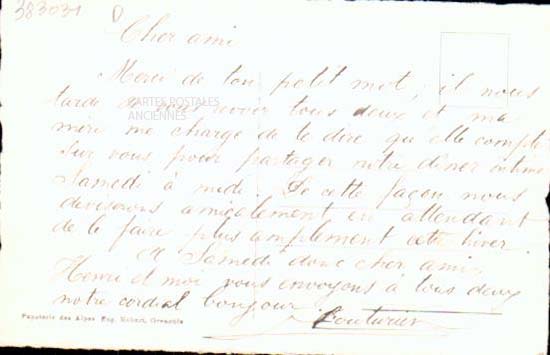 383031
Cher ami
Merci de ton petit mot, il nous
tarde de vous revoir tous deux et ma
CARTES POSTALES
ANCIENNES
mère me charge de te dire qu'elle compte
sur vous pour partager notre dîner intime
Samedi à midi. De cette façon nous
deviserons amicalement en attendant
de le faire plus amplement cette hiver.
A Samedi donc cher ami,
Henri et moi vous envoyons à tous deux
notre cordial bonjour
Couturier
Papeterie des Alpes Eug. Robert, Grenoble